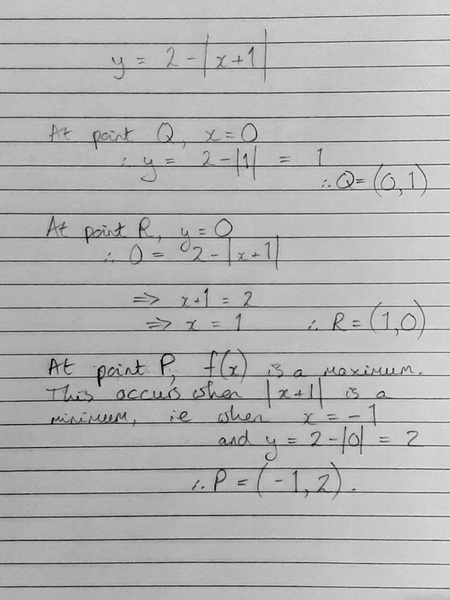 y = 2 - |x+1|
At point Q, x = 0
∴ y = 2 - |1| = 1
∴ Q = (0,1)
At point R, y = 0
∴ 0 = 2 - |x+1|
⇒ x+1 = 2
⇒ x = 1 ∴ R = (1,0)
At point P, f(x) is a maximum.
This occurs when |x+1| is a
minimum, ie when x = -1
and y = 2 - |0| = 2
∴ P = (-1, 2).